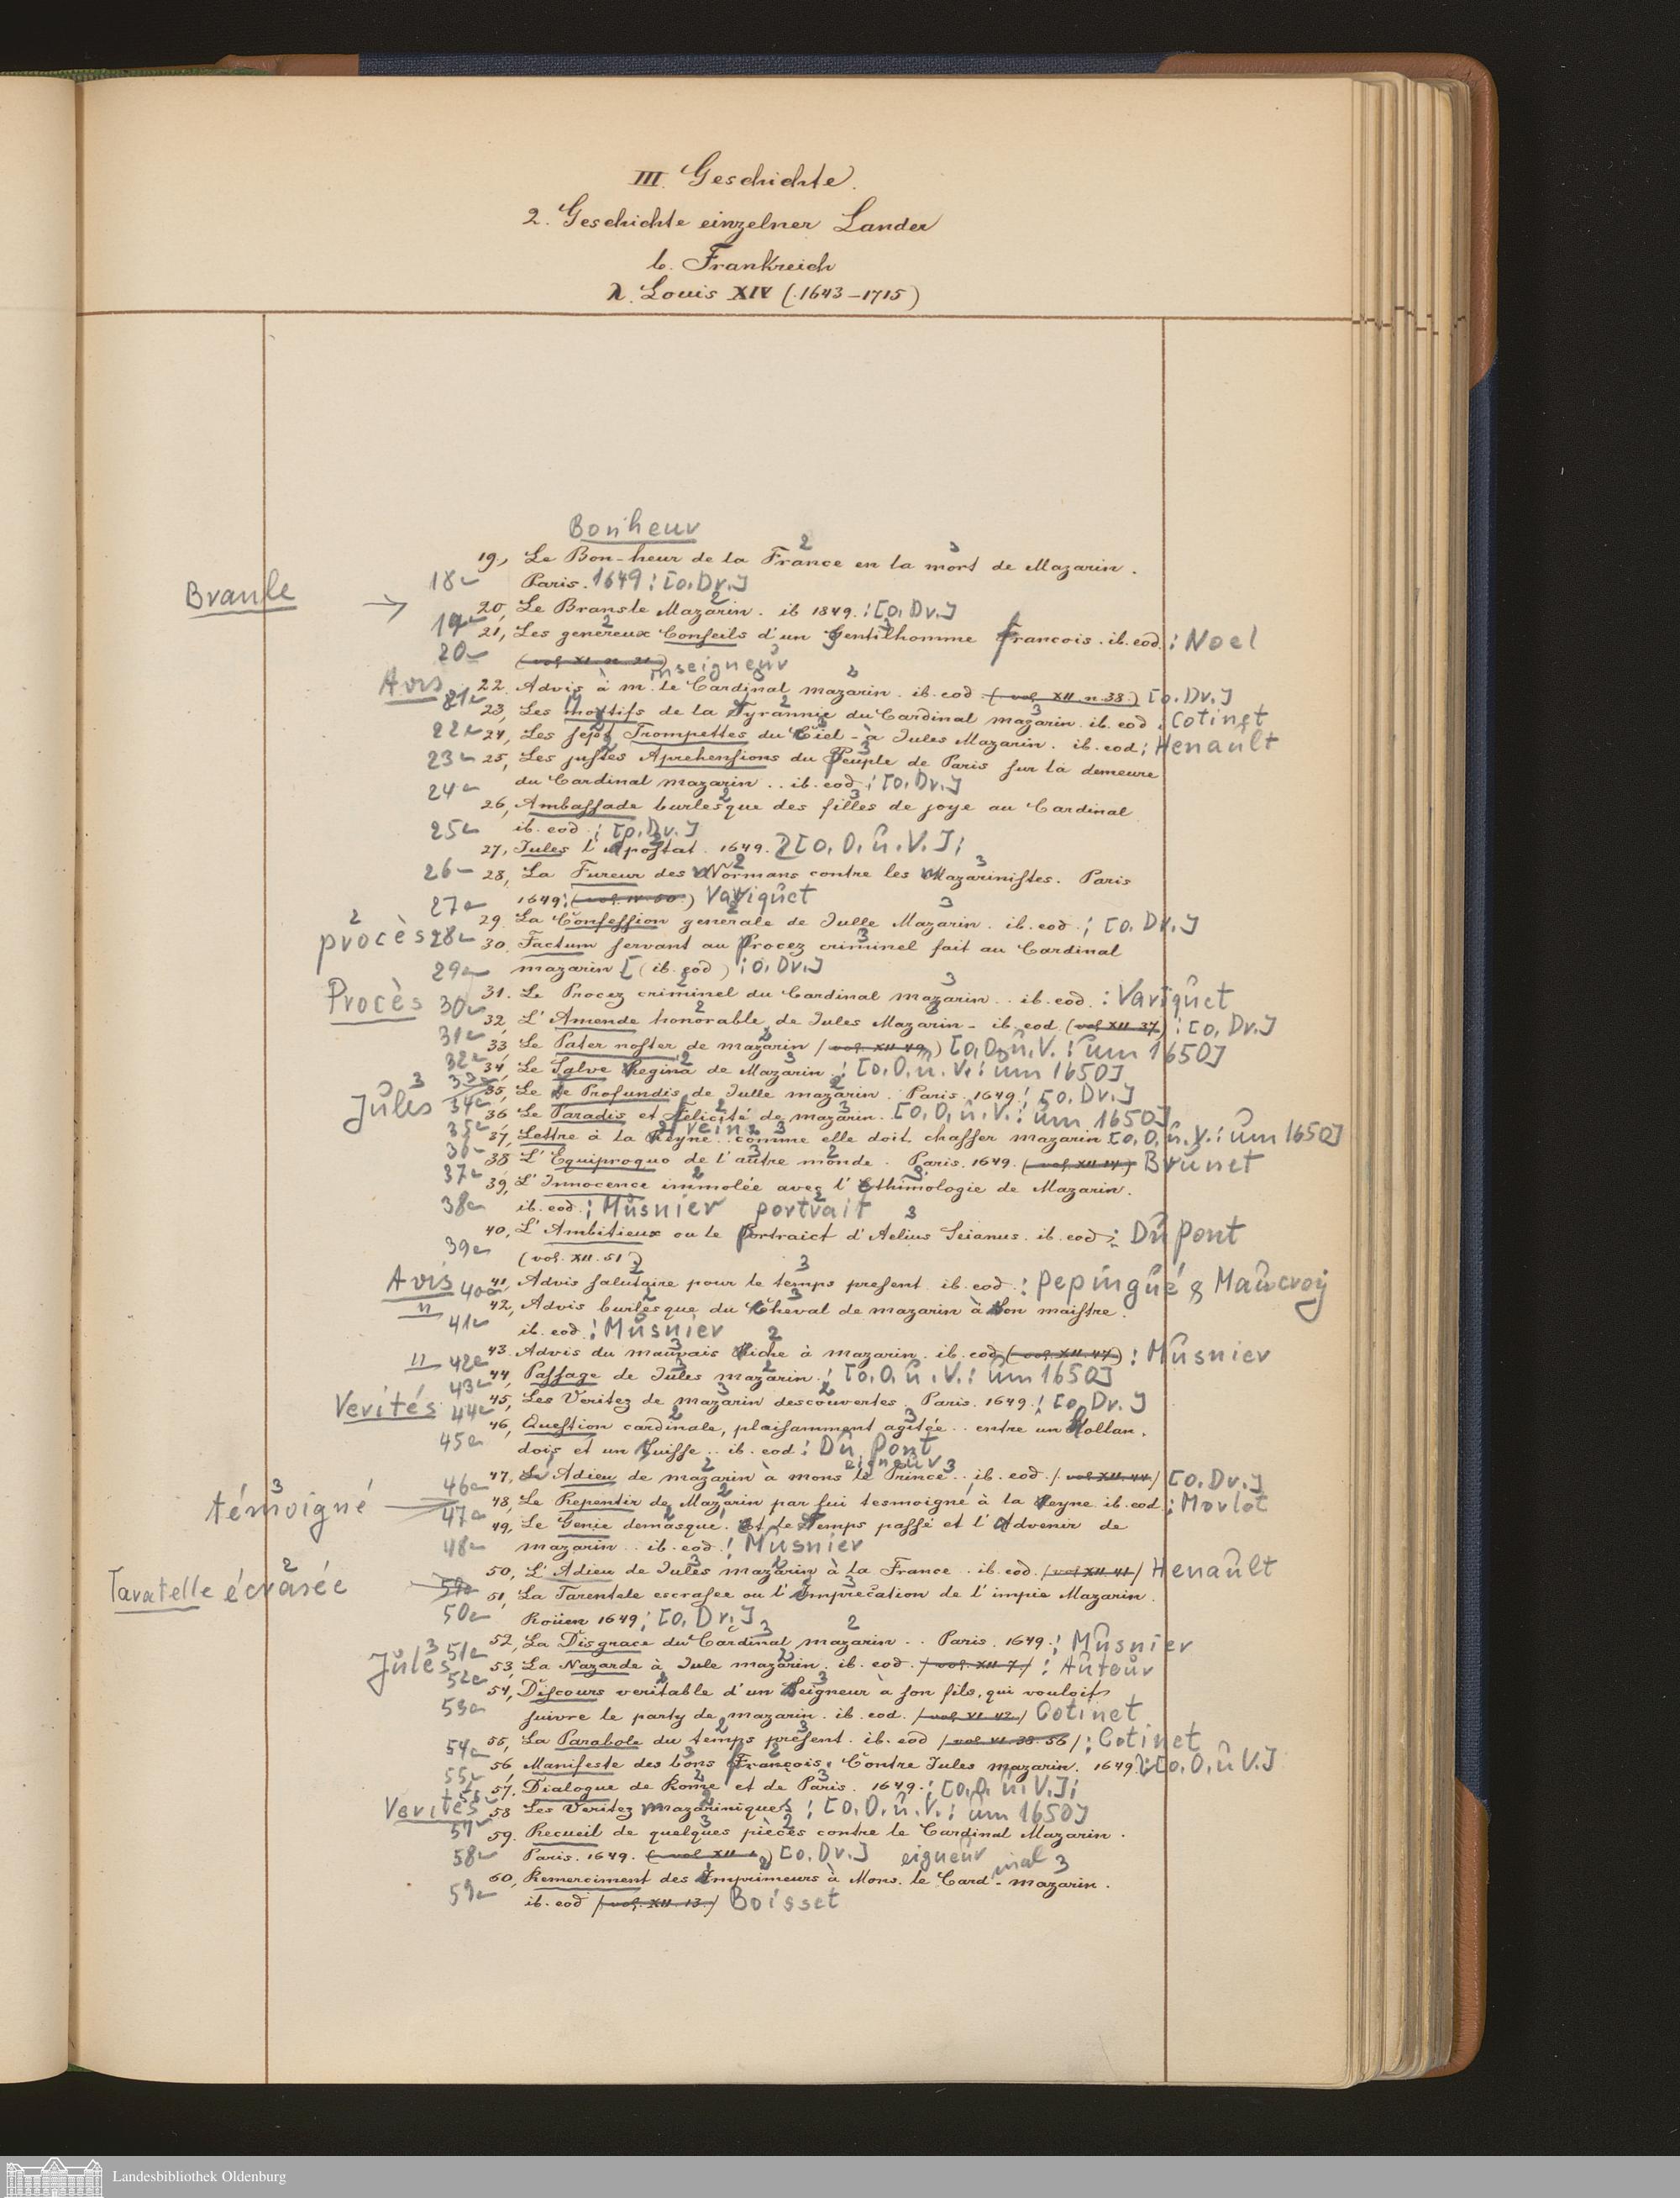 III. Geschichte.
2. Geschichte einzelner Länder
b. Frankreich
λ. Louis XIV (1643–1715)
Bonheur
19., Le Bon-heur de la France en la mort de Mazarin.
18 Paris. 1649: [o. Dr.]
Branle → 20, Le Bransle Mazarin. ib 1849.: [o. Dr.]
19 21, Les genereux Conseils d'un Gentilhomme francois. ib. eod.: Noel
20 (vol. XI. n. 21)
Avis 21 22. Advis à m. le Cardinal mazarin. ib. eod (vol. XII. n. 38.) [o. Dr.]
23, Les motifs de la Tyrannie du Cardinal mazarin. ib. eod: Cotinet
22 24, Les sept Trompettes du Ciel - à Jules Mazarin. ib. eod: Henault
23 25, Les justes Aprehensions du Peuple de Paris sur la demeure
du Cardinal mazarin .. ib. eod: [o. Dr.]
24 26, Ambassade burlesque des filles de joye au Cardinal
25 ib. eod: [o. Dr.]
27, Jules l'apostat. 1649. [o. O. u. V.];
26 28, La Fureur des Normans contre les Mazarinistes. Paris
27 1649: Variquet
29. La Confession generale de Julle Mazarin. ib. eod.; [o. Dr.]
procès 28 30. Factum servant au procez criminel fait au Cardinal
29 mazarin [(ib. eod): o. Dr.]
Procès 30 31. Le Procez criminel du Cardinal mazarin .. ib. eod.: Variquet
31 32, L'Amende honorable de Jules Mazarin - ib. eod. (vol XII. 37): [o. Dr.]
33 Le Pater noster de mazarin (vol. XII 49) [o. O. u. V.: um 1650]
32 34, Le Salve Regina de Mazarin.: [o. O. u. V.: um 1650]
Jules 33 35, Le de Profundis de Julle mazarin. Paris. 1649: [o. Dr.]
34 36 Le Paradis et felicité de mazarin. [o. O. u. V.: um 1650]
35 37, Lettre à la Reyne .. comme elle doit chasser mazarin [o. O. u. V.: um 1650]
36 38 L'Equiproquo de l'autre monde. Paris. 1649. (vol. XII. 14) Brunet
37 39, L'Innocence immolée avec l'Ethimologie de Mazarin.
38 ib. eod.: Musnier portrait
40, L'Ambitieux ou le portraict d'Aelius Seianus. ib. eod: Du Pont
39 (vol. XII. 51)
Avis 40 41, Advis salutaire pour le temps present. ib. eod.: Pepingué & Maucroy
" 42, Advis burlesque du Cheval de mazarin à son maistre.
41 ib. eod.: Musnier
" 42 43. Advis du mauvais Riche à mazarin. ib. eod. (vol. XII. 47): Musnier
44, Passage de Jules mazarin.: [o. O. u. V.: um 1650]
43 45, Les Veritez de mazarin descouvertes. Paris. 1649.: [o. Dr.]
Verités 44 46, Question cardinale, plaisamment agitée .. entre un Hollan.
45 dois et un Suisse .. ib. eod: Du Pont
47, L'Adieu de mazarin à mons le Prince .. ib. eod. (vol XII. 44) [o. Dr.]
46 48, Le Repentir de Mazarin par lui tesmoigné à la Reyne ib. eod.: Morlot
témoigné 47 49, Le Genie demasqué. Et le Temps passé et l'Advenir de
48 mazarin .. ib. eod: Musnier
50, L'Adieu de Jules mazarin à la France .. ib. eod. (vol XII. 41) Henault
Taratelle écrasée 51, La Tarentele escrasee ou l'Imprecation de l'impie Mazarin.
50 Roüen 1649: [o. Dr.]
51 52, La Disgrace du Cardinal mazarin .. Paris. 1649.: Musnier
Jules 53, La Nazarde à Jule mazarin. ib. eod. (vol. XII 7): Auteur
52 54, Discours veritable d'un Seigneur à son fils, qui vouloit
53 suivre le party de mazarin. ib. eod. (vol. VI. 42) Cotinet
55, La Parabole du temps present. ib. eod (vol. VI. 38. 56): Cotinet
54 56, Manifeste des bons François, Contre Jules mazarin. 1649: [o. O. u V.]
55 57. Dialogue de Rome et de Paris. 1649.: [o. O. u. V.];
Verités 58 Les Veritez mazariniques: [o. O. u. V.: um 1650]
57 59. Recueil de quelques pièces contre le Cardinal Mazarin.
58 Paris. 1649. [o. Dr.] eigneur inal
60, Remerciment des Imprimeurs à Mons. le Card - mazarin.
59 ib. eod (vol. XII. 13.) Boisset
Landesbibliothek Oldenburg